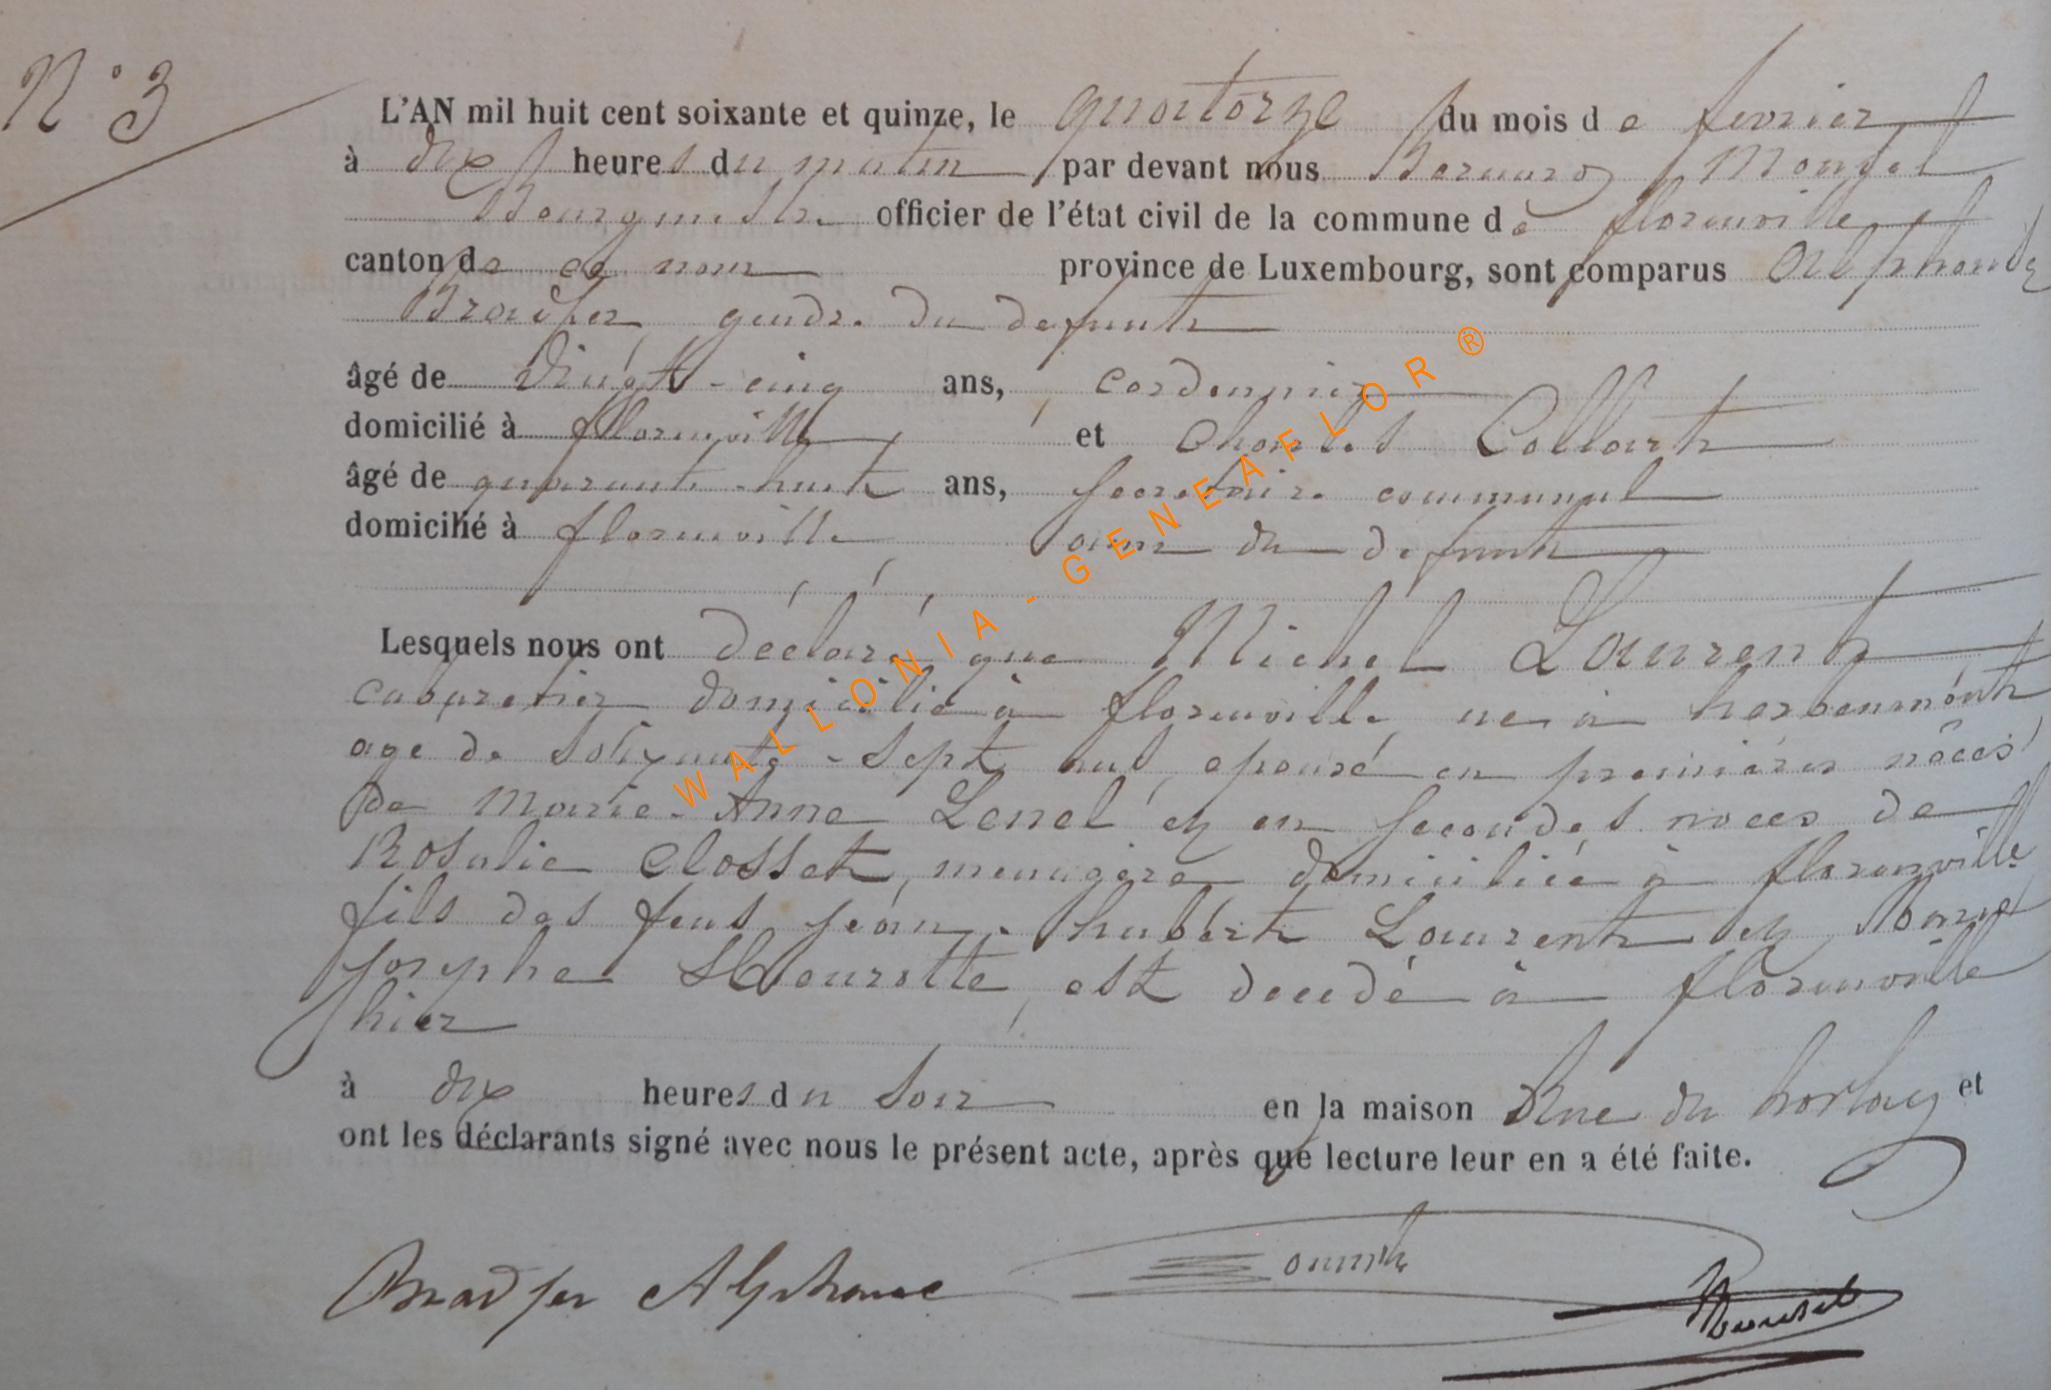 N° 3
L'AN mil huit cent soixante et quinze, le quatorze du mois de fevrier
à dix heures du matin, par devant nous Bernard Monzel
Bourgmestre officier de l'état civil de la commune de florenville
canton de ce nom province de Luxembourg, sont comparus Alphonse
gendre du defunt
âgé de vingt-cinq ans, cordonnier
domicilié à florenville et Charles Collart
âgé de quarante-huit ans, secretaire communal
domicilié à florenville, ami du défunt
Lesquels nous ont déclaré que Michel Laurent
cabaretier domicilié à florenville né à herbeumont
age de soixante-sept ans, epousé en premières nôces
de Marie-Anne Lenel et en secondes noces de
Rosalie Closset, menagère domiciliée à florenville
fils des feus jean-hubert Laurent et Marie
josephe, est decedé à florenville
hier
à dix heures du soir en la maison Rue du et
ont les déclarants signé avec nous le présent acte, après que lecture leur en a été faite.
Alphonse
WALLONIA - GENEAFLOR ®